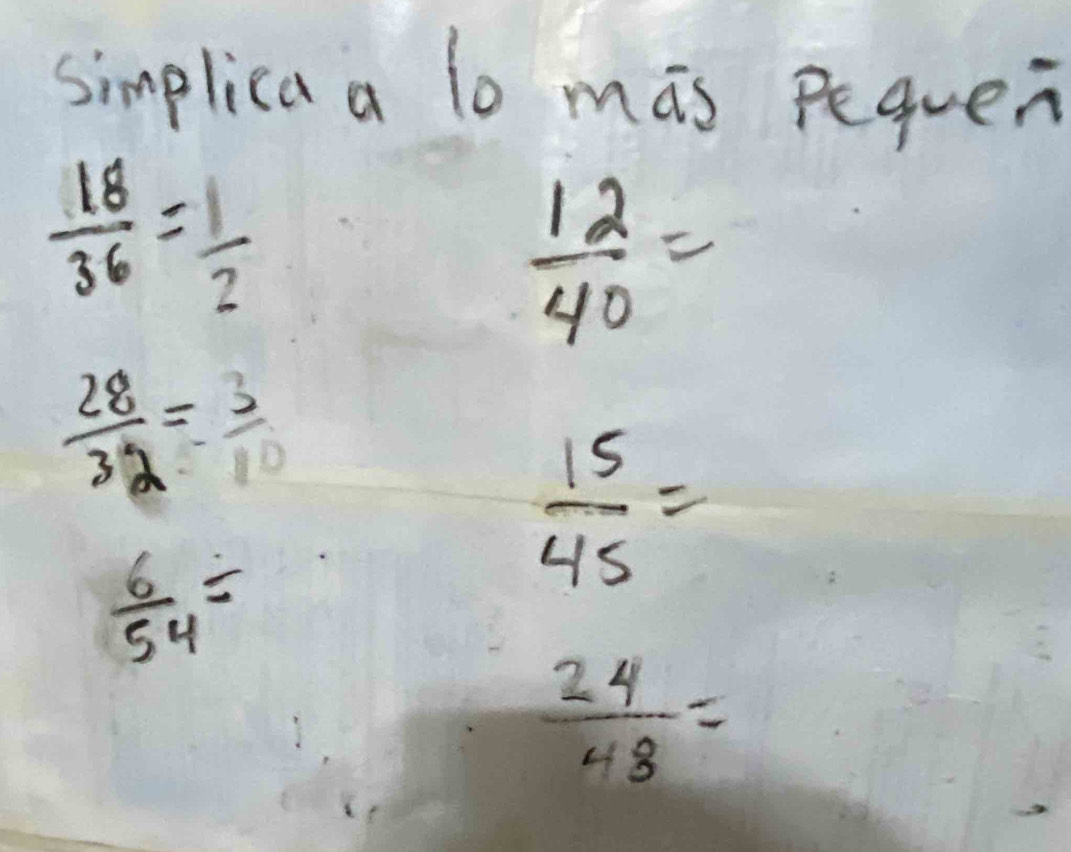 simplica a lo más Pequeñ
18/36 = 1/2
12/40 =
28/32 = 3/10
15/45 =
6/54 =
24/48 =